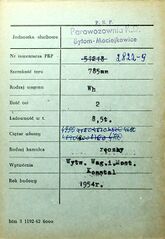 P. K. P.
Jednostka służbowa
Parowozownia Kl.
Bytom-Maciejkowice
Nr inwentarza PKP 51218 2822-9
Szerokość toru 785mm
Rodzaj wagonu Wh
Ilość osi 2
Ładowność w t. 8,5t.
Ciężar własny
Rodzaj hamulca ręczny
Wytwórnia Wytw. Wag. i Most.
Konstal
Rok budowy 1954r.